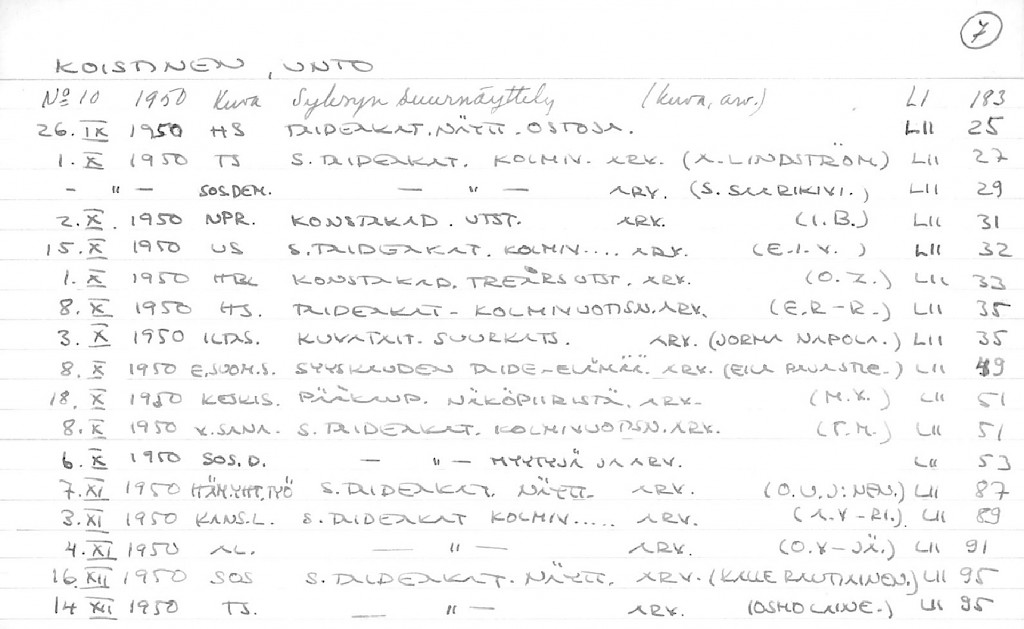 7
KOISTINEN, UNTO
No 10 1950 Kuva Syksyn suurnäyttely (kuva, arv.) LI 183
26. IX 1950 HS TAIDEAKAT. NÄYTT. OSTOJA. LII 25
1. X 1950 TS S. TAIDEAKAT. KOLMIV. ARV. (A. LINDSTRÖM) LII 27
– " – SOS.DEM. – " – ARV. (S. SAARIKIVI.) LII 29
2. X. 1950 NPR. KONSTAKAD. UTST. ARV. (I.B.) LII 31
15. X 1950 US S. TAIDEAKAT. KOLMIV.... ARV. (E.I.V.) LII 32
1. X 1950 HBL KONSTAKAD. TREÅRSUTST. ARV. (O.Z.) LII 33
8. X 1950 HS. TAIDEAKAT – KOLMIVUOTISN. ARV. (E.R–R.) LII 35
3. X 1950 ILTAS. KUVATAIT. SUURKATS. ARV. (JORMA NAPOLA.) LII 35
8. X 1950 E.SUOM.S. SYYSKAUDEN TAIDE–ELÄMÄÄ. ARV. LII 49
18. X 1950 KESKIS. PÄÄKAUP. NÄKÖPIIRISTÄ. ARV– (M.K.) LII 51
8. X 1950 K.SANA. S. TAIDEAKAT. KOLMIVUOTISN. ARV. (T.M.) LII 51
6. X 1950 SOS.D. – " – MYYTYJÄ JA ARV. LII 53
7. XI 1950 HÄM.YHT.TYÖ S. TAIDEAKAT. NÄYTT– ARV. (O.U.J:NEN.) LII 87
3. XI 1950 KANS.L. S. TAIDEAKAT KOLMIV..... ARV. (A.K–RI.) LII 89
4. XI 1950 AL. — " — ARV. (O.K–JÄ.) LII 91
16. XII 1950 SOS S. TAIDEAKAT. NÄYTT. ARV. (KALLE RAUTIAINEN.) LII 95
14 XII 1950 TS. — " — ARV. (OSMO LAINE.) LII 95